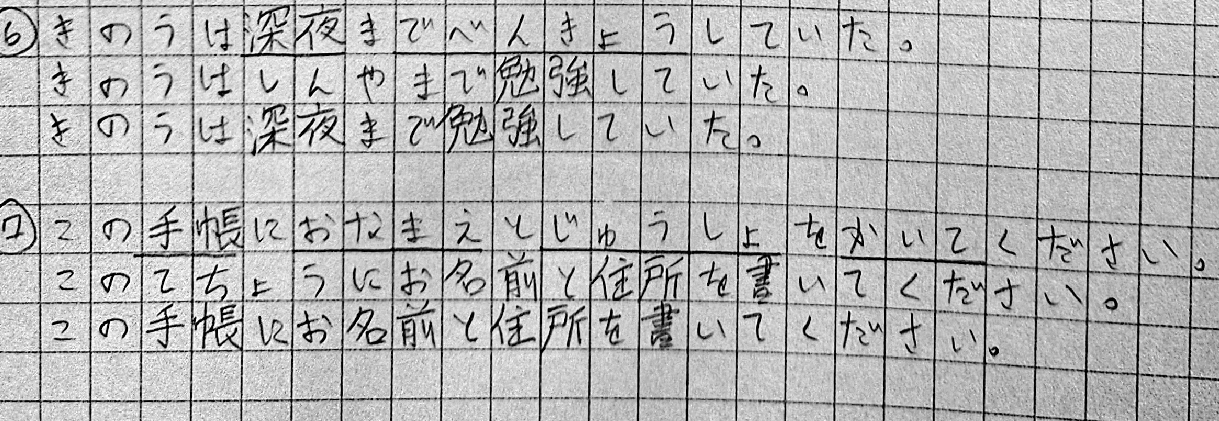 ⑥きのうは深夜までべんきょうしていた。
きのうはしんやまで勉強していた。
きのうは深夜まで勉強していた。
⑦この手帳におなまえとじゅうしょをかいてください。
このてちょうにお名前と住所を書いてください。
この手帳にお名前と住所を書いてください。